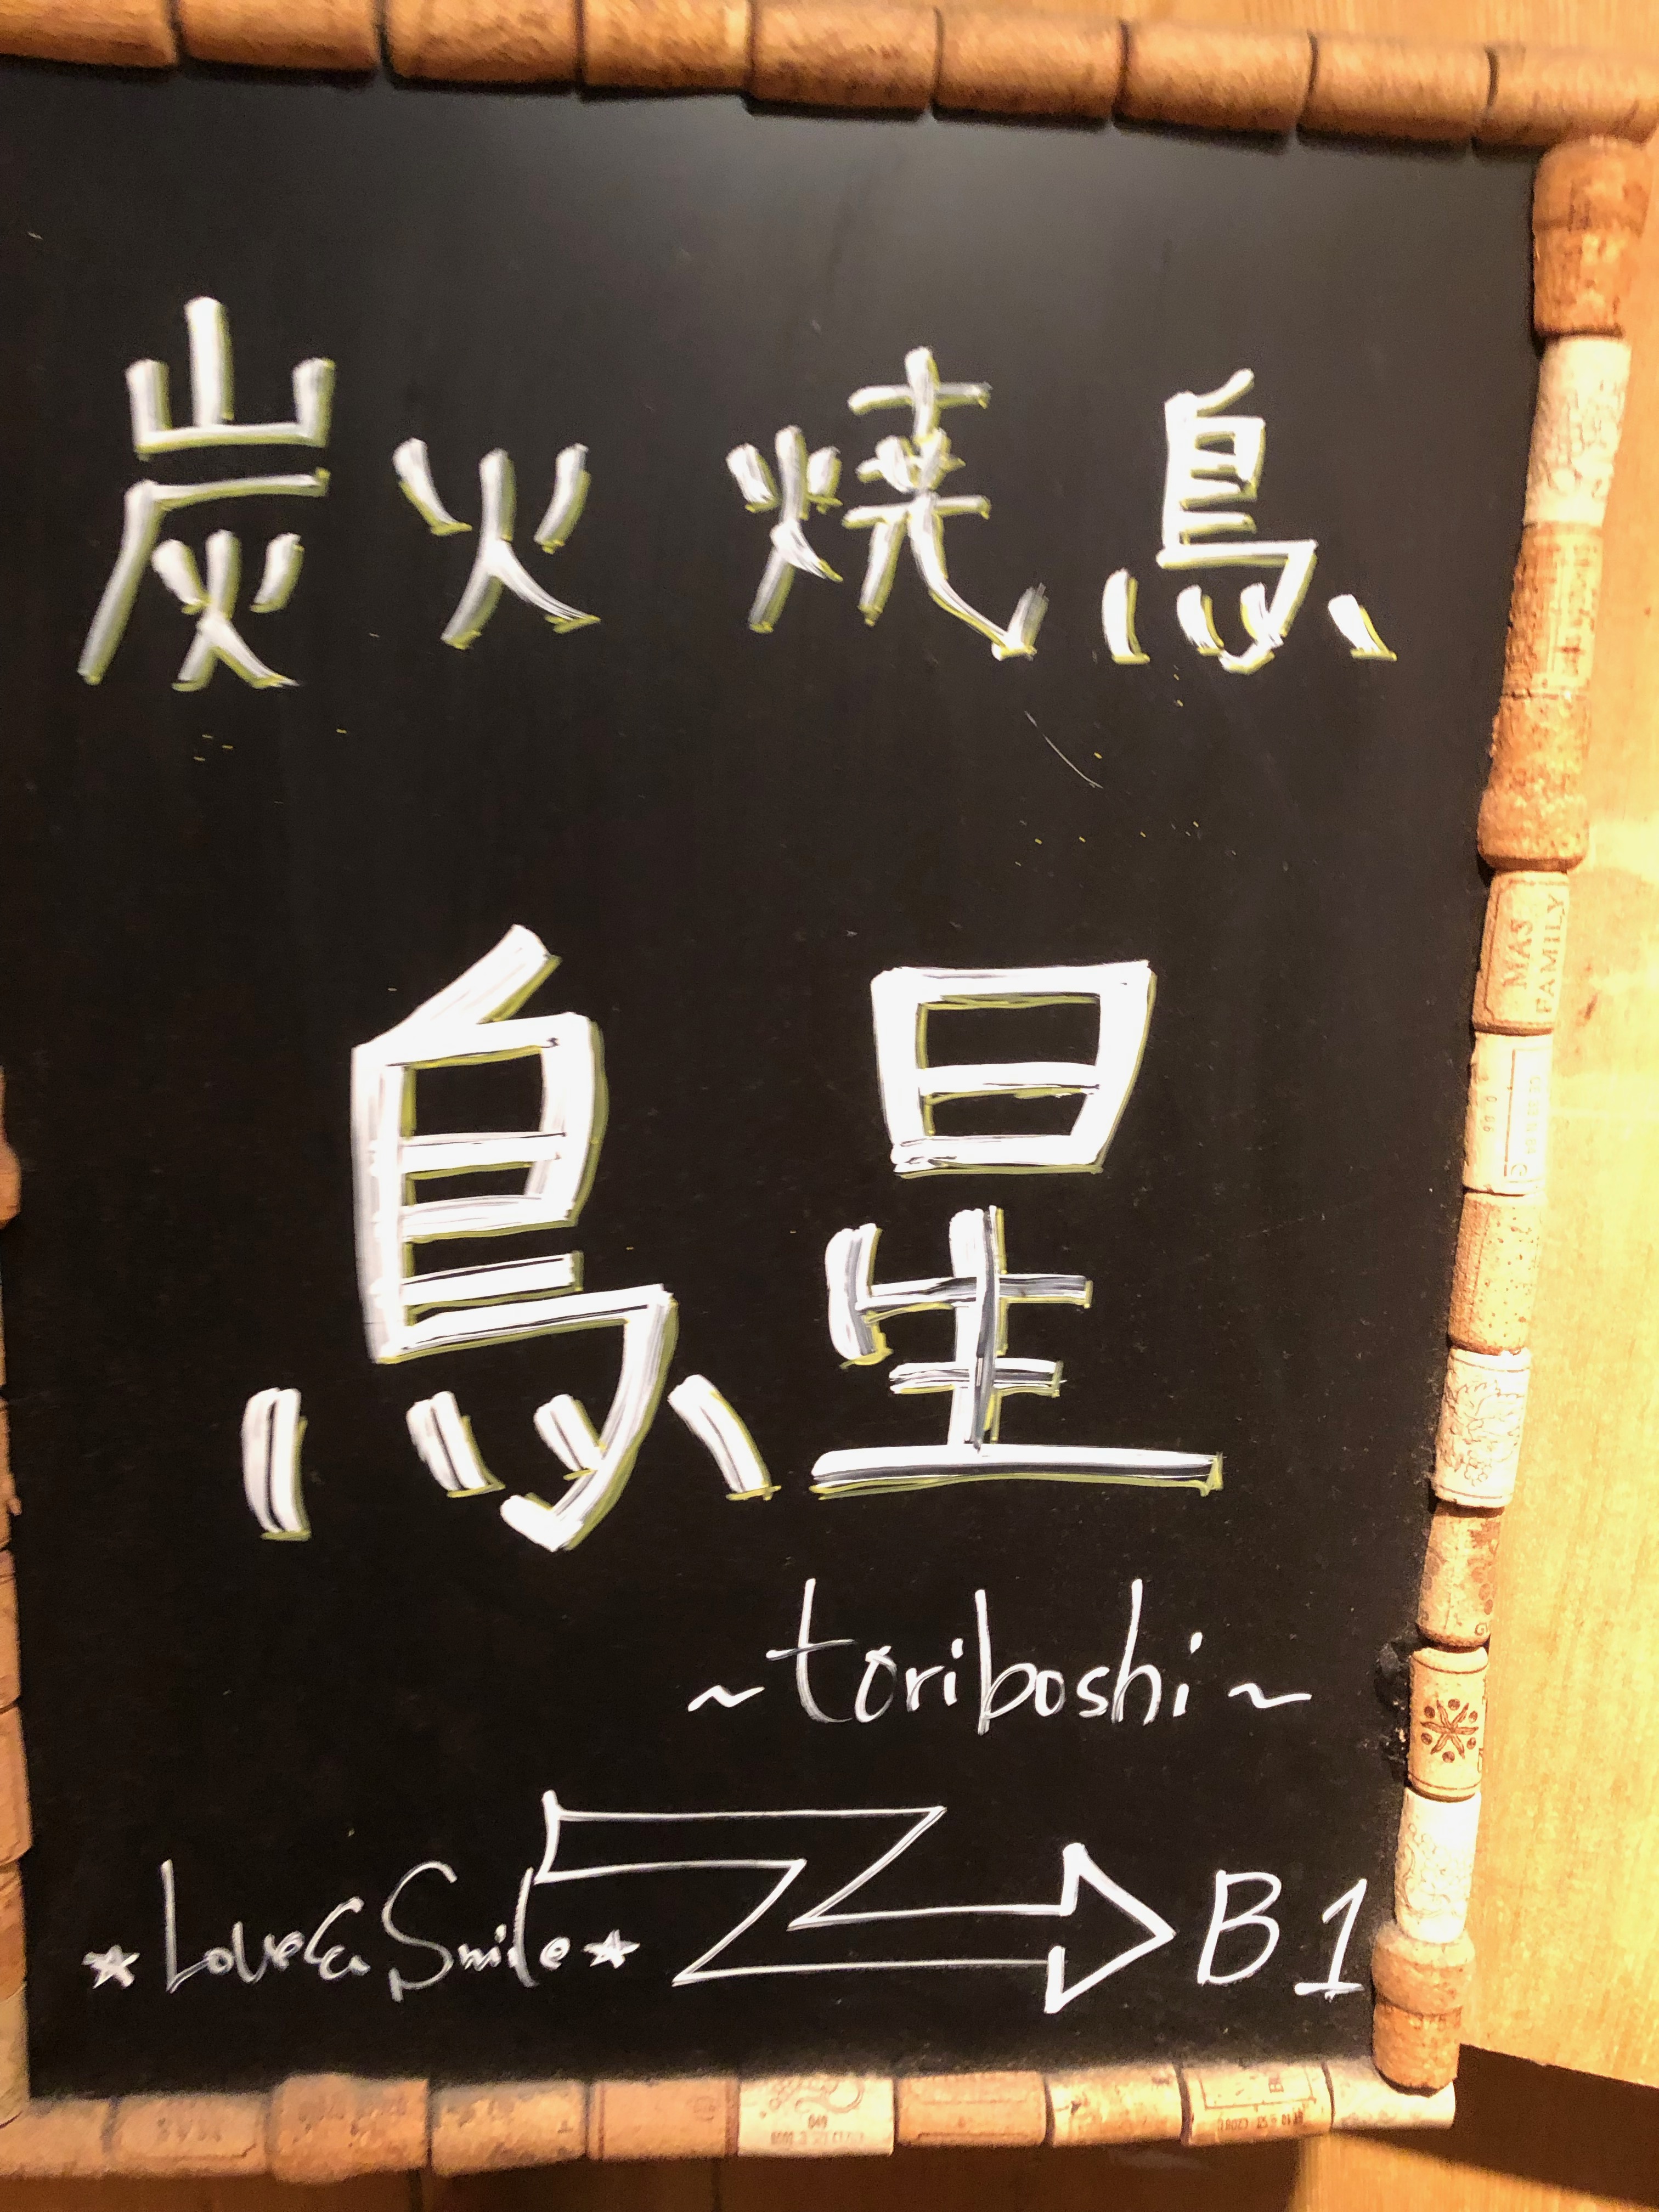 炭火 焼鳥
鳥星
~toriboshi~
★Love&Smile★ B1
MAS
FAMILY